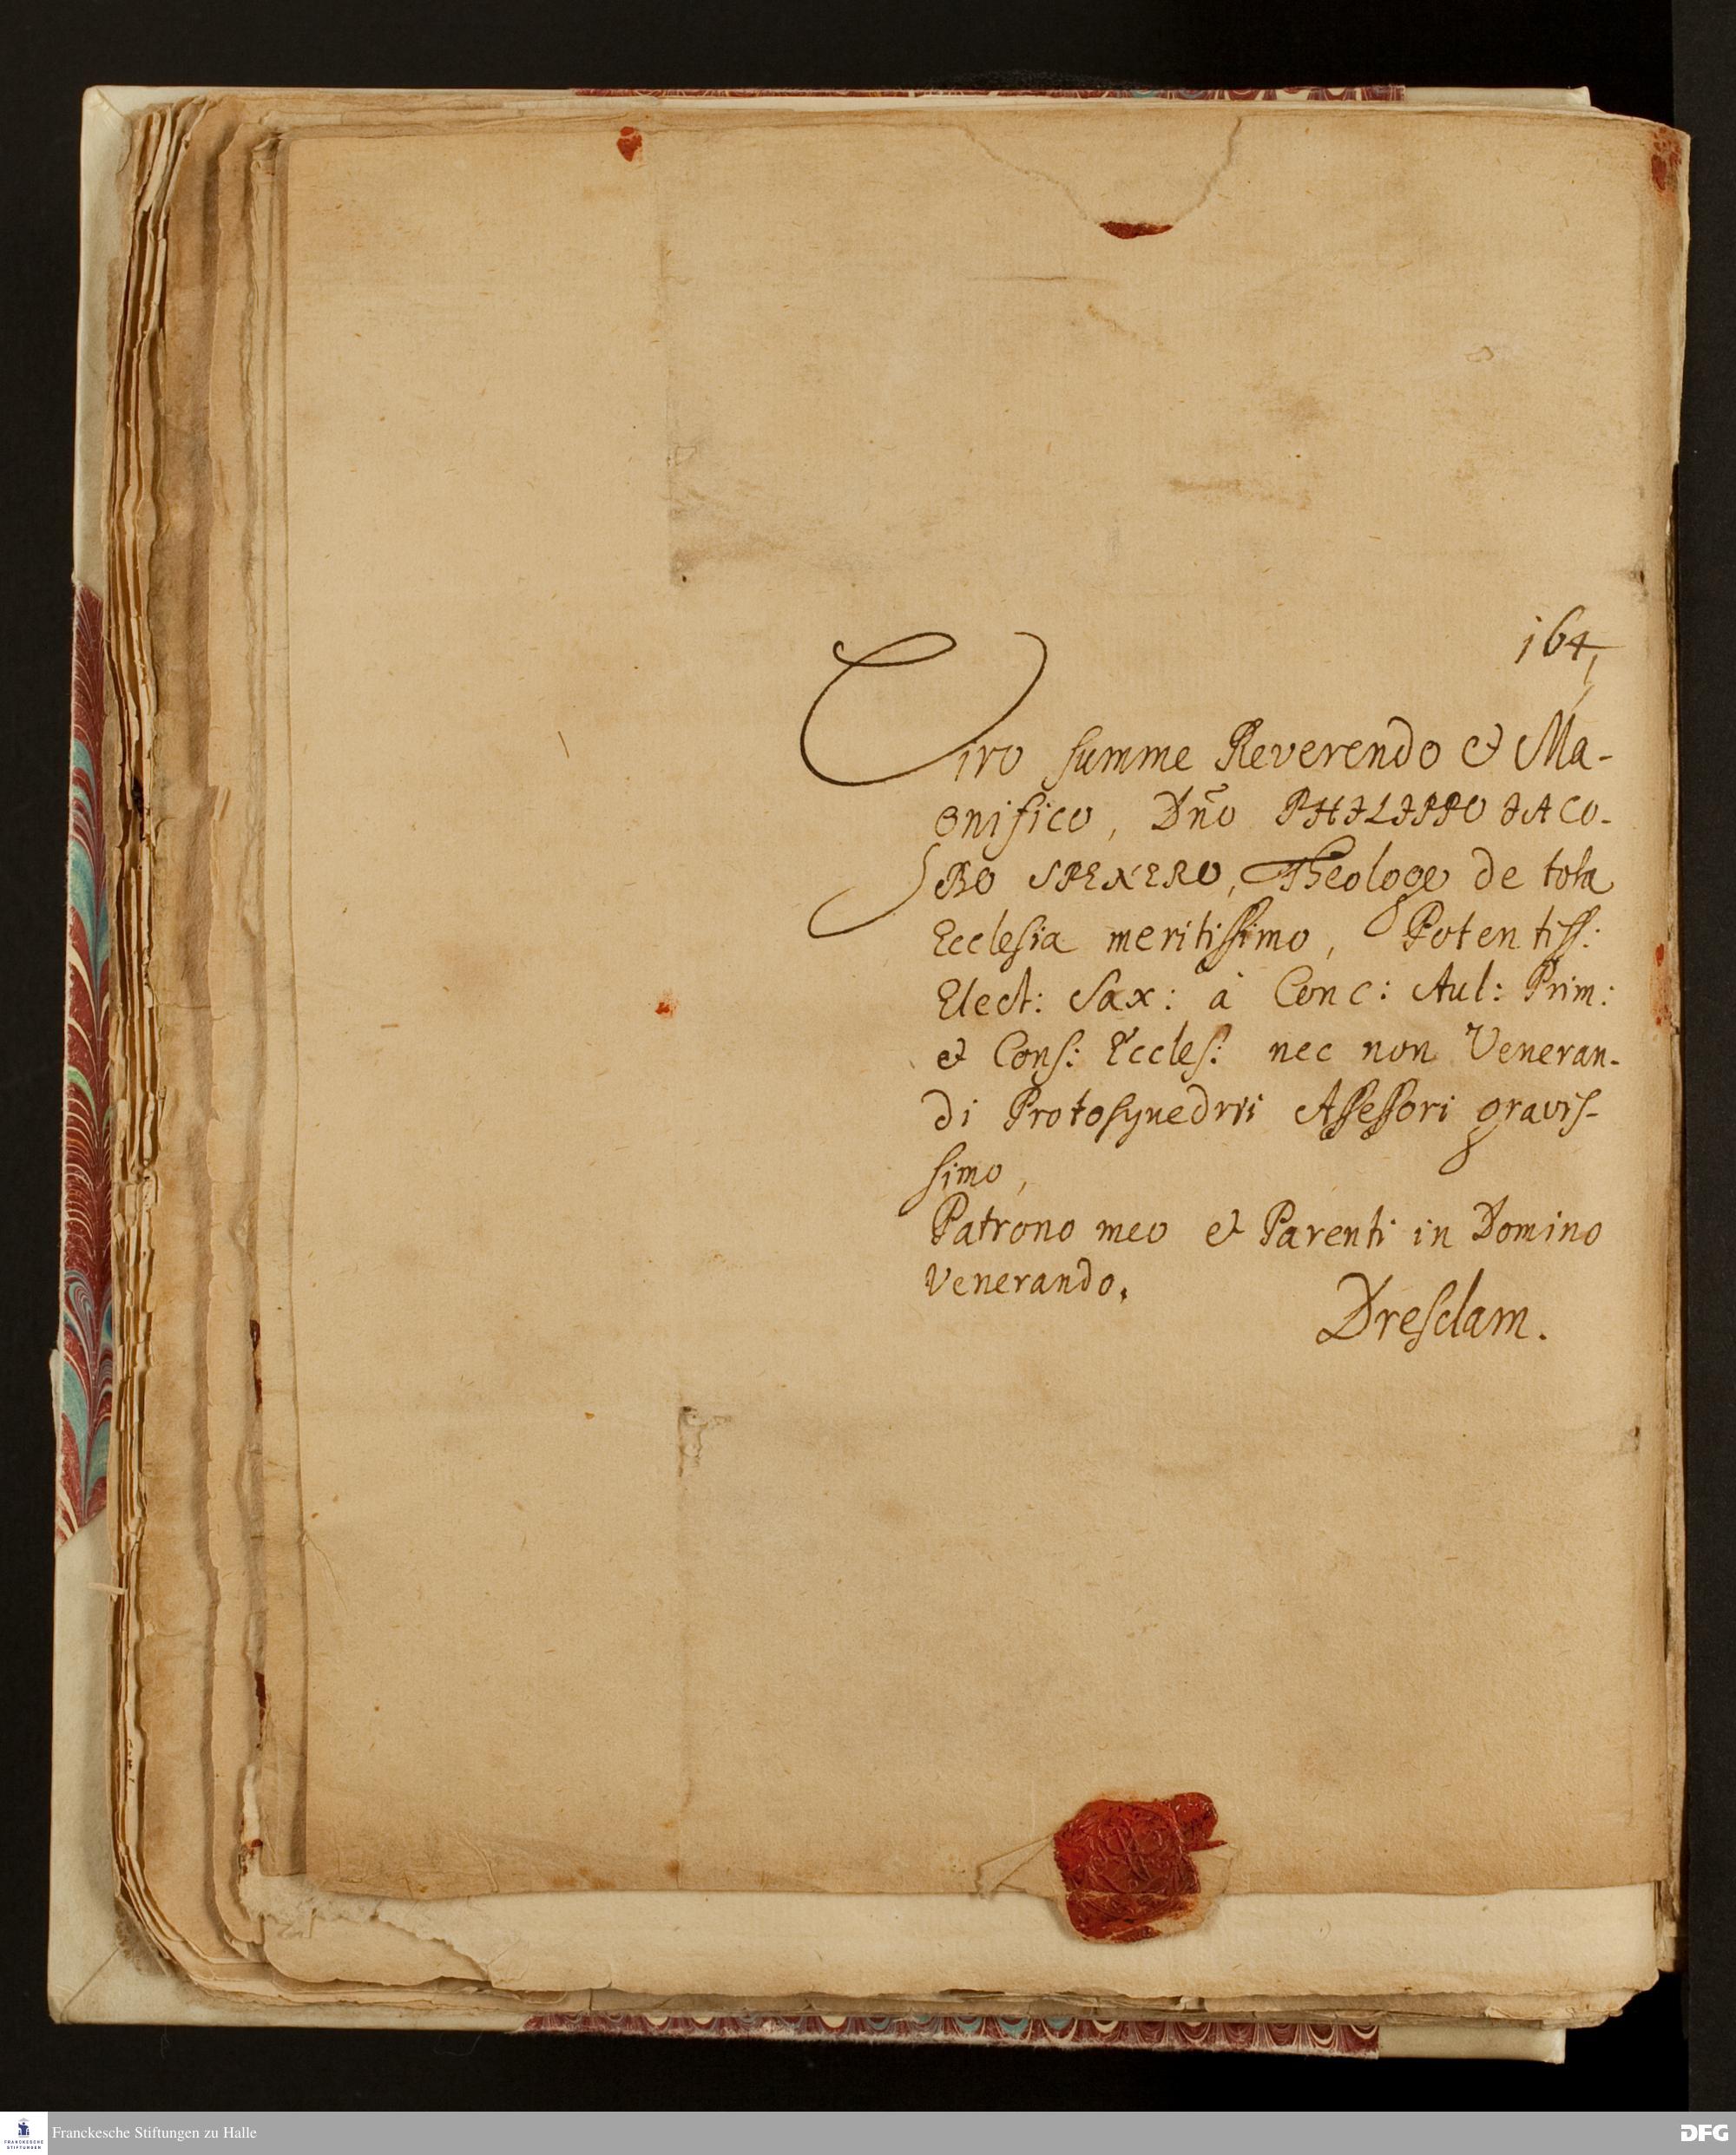 164
Viro summe Reverendo et Ma-
gnifico, Dño PHILIPPO JACO-
BO SPENERO, Theologo de tota
Ecclesia meritissimo, Potentiss:
Elect: Sax: à Conc: Aul: Prim:
et Cons: Eccles: nec non Veneran-
di Protosynedrii Assessori gravis-
simo,
Patrono meo et Parenti in Domino
venerando.
Dresdam.
FRANCKESCHE
STIFTUNGEN
Franckesche Stiftungen zu Halle
DFG